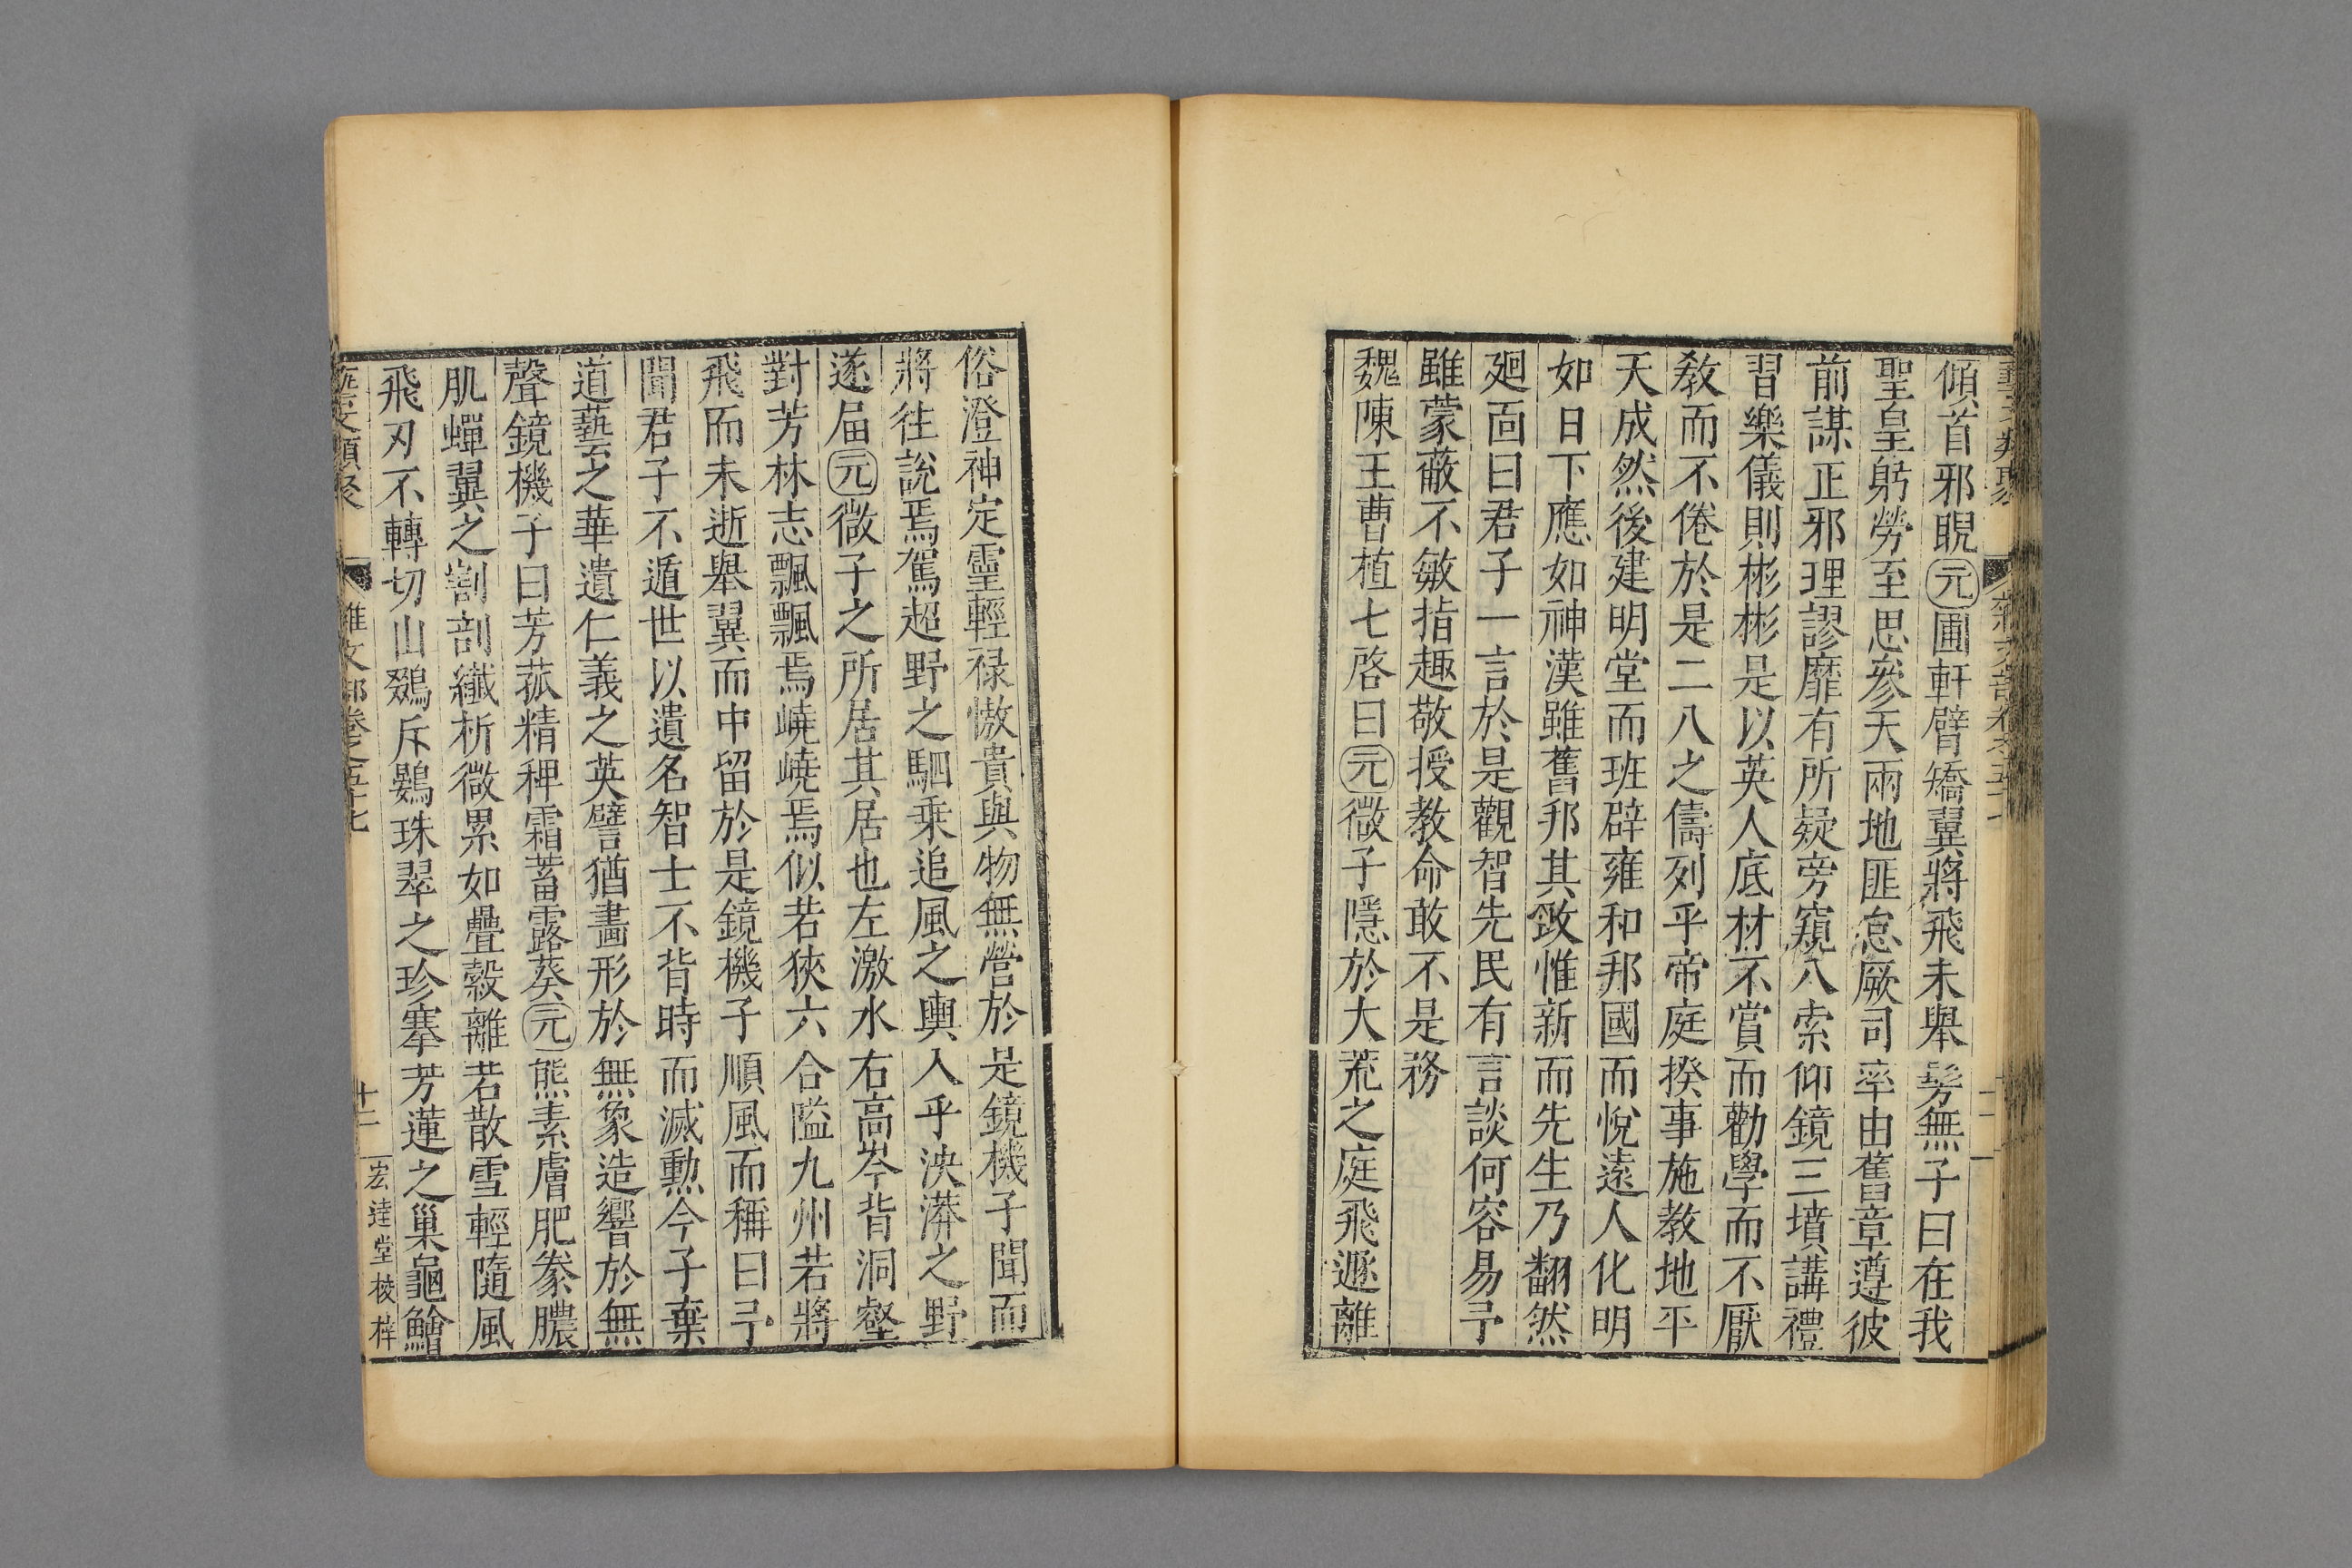 傾首邪睨元圃軒臂矯翼將飛未舉髣無子曰在我
聖皇躬勞至思參天兩地匪怠厥司率由舊章遵彼
前謀正邪理謬靡有所疑旁窺八索仰鏡三墳講禮
習樂儀則彬彬是以英人底材不賞而勸學而不厭
敎而不倦於是二八之儔列乎帝庭揆事施教地平
天成然後建明堂而班辟雍和邦國而悅遠人化明
如日下應如神漢雖舊邦其政惟新而先生乃翻然
廻面曰君子一言於是觀智先民有言談何容易予
雖蒙蔽不敏指趣敬授教命敢不是務
魏陳王曹植七啓曰元微子隱於大荒之庭飛遯離
俗澄神定靈輕祿慠貴與物無營於是鏡機子聞而
將往說焉駕超野之駟乗追風之輿入乎泱漭之野
遂屆元微子之所居其居也左激水右高岑背洞壑
對芳林志飄飄焉嶢嶢焉似若狹六合隘九州若將
飛而未逝舉翼而中留於是鏡機子順風而稱曰予
聞君子不遁世以遺名智士不背時而滅勲今子棄
道藝之華遺仁義之英譬猶畵形於無象造響於無
聲鏡機子曰芳菰精稗霜蓄露葵元熊素膚肥豢膿
肌蟬翼之割剖纖析微累如疊縠離若散雪輕隨風
飛刃不轉切山鵽斥鷃珠翠之珍搴芳蓮之巢龜鱠
藝文類聚 雜文部卷之五十七 十二 宏達堂棱梓